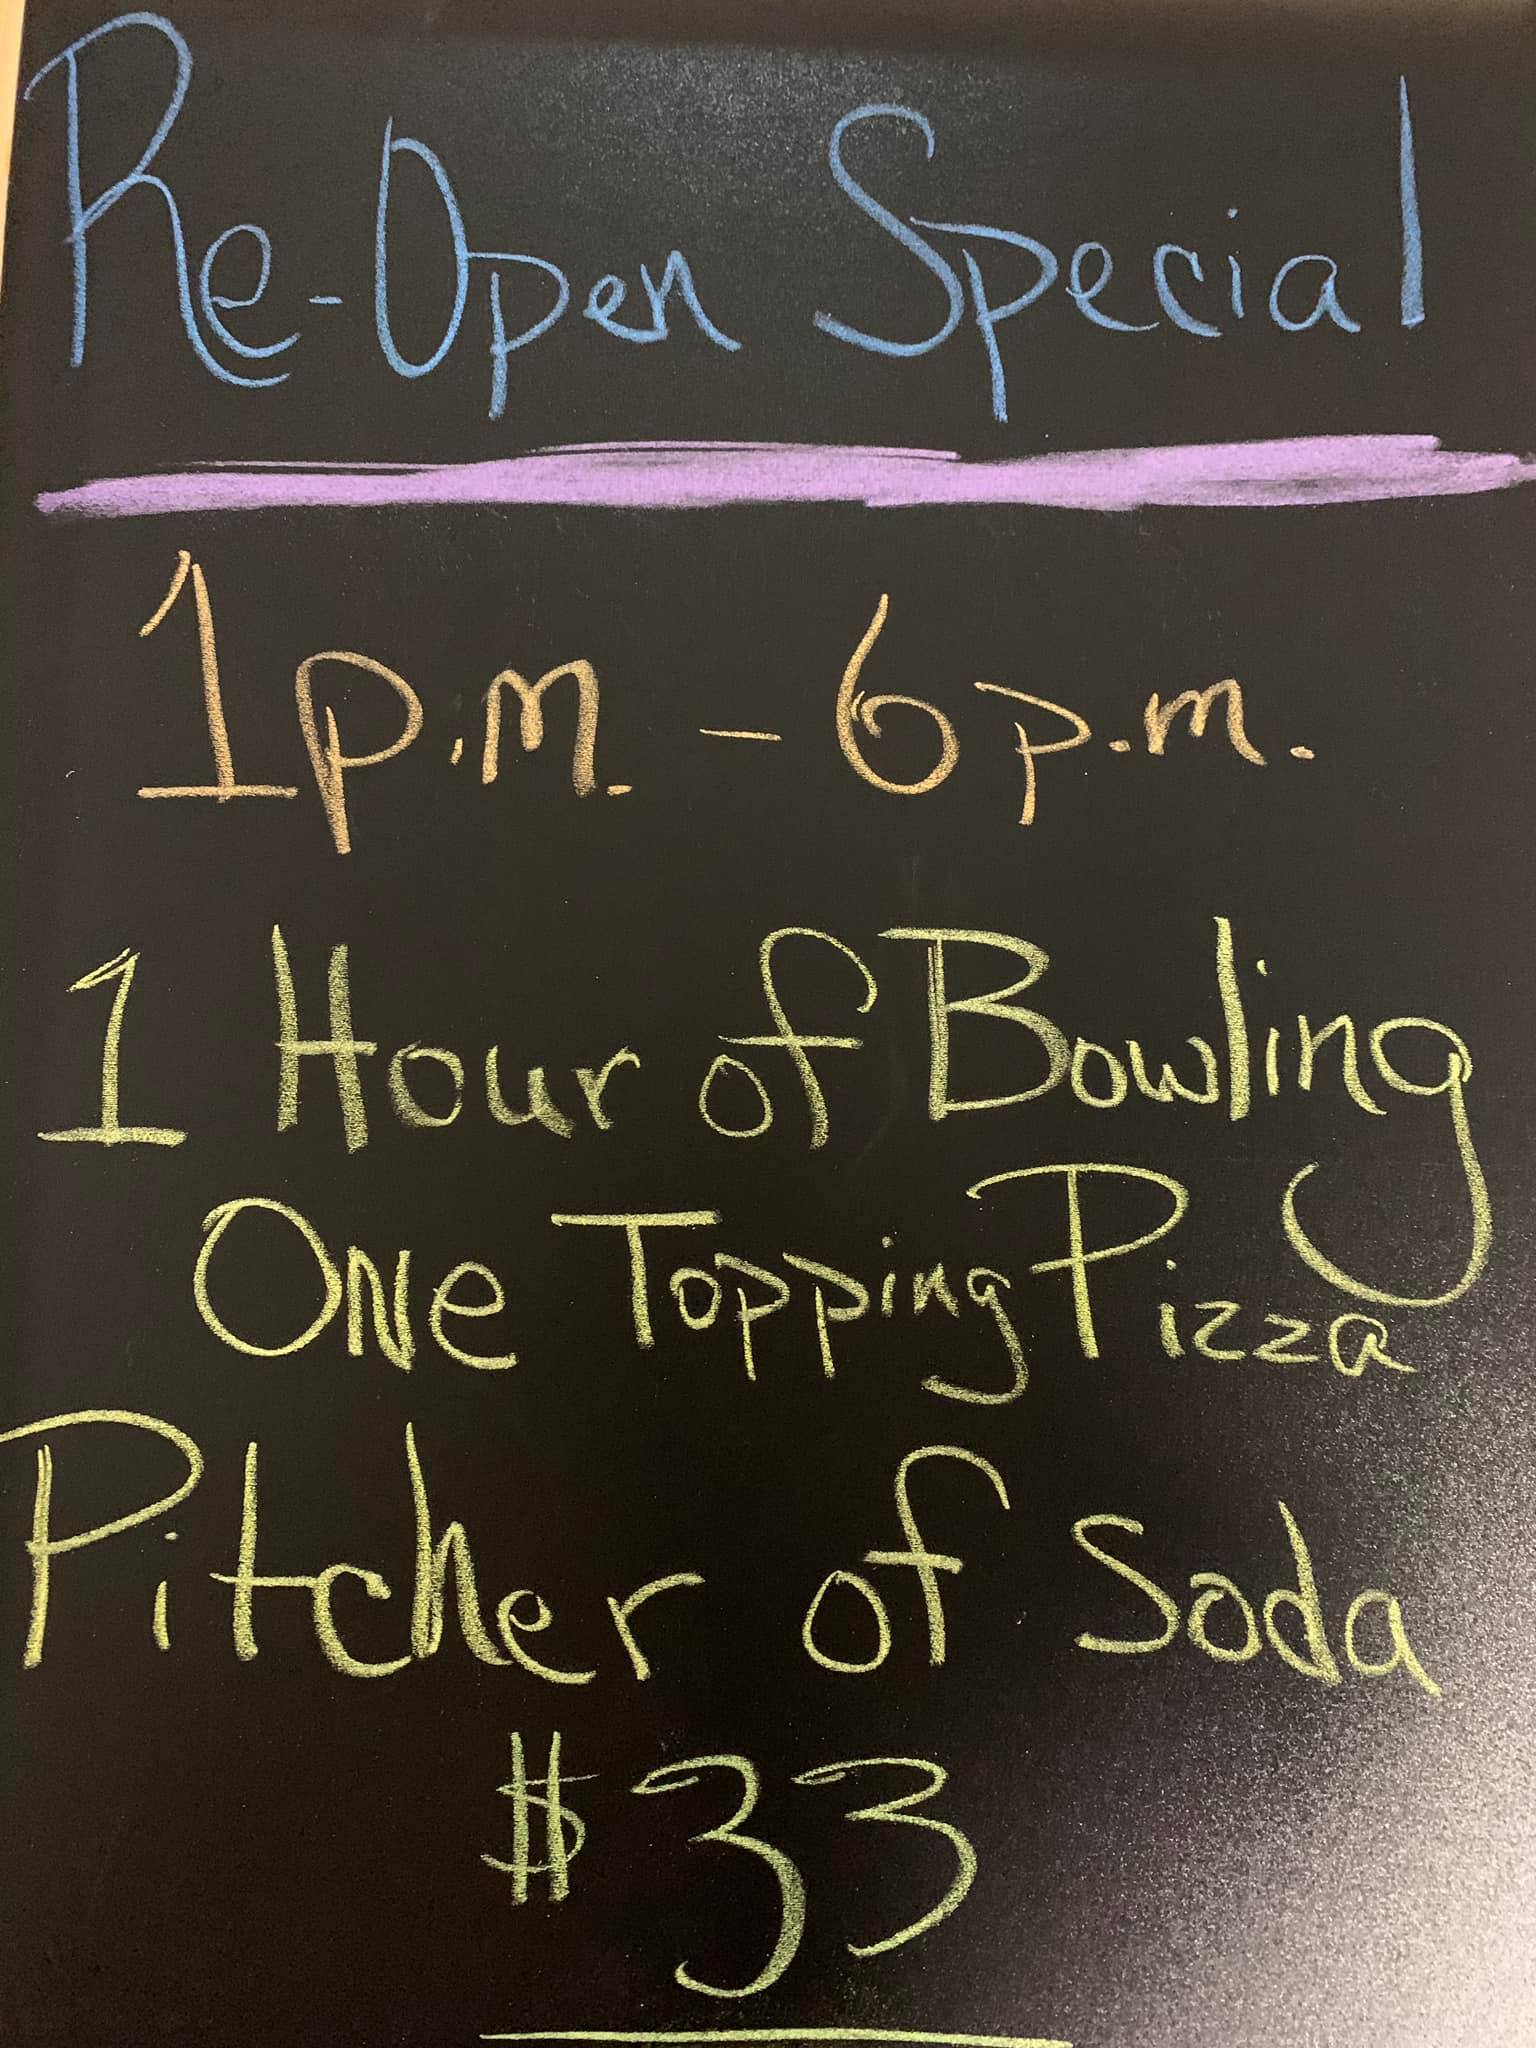 Re-Open Special
1 p.m. - 6 p.m.
1 Hour of Bowling
One Topping Pizza
Pitcher of Soda
$33